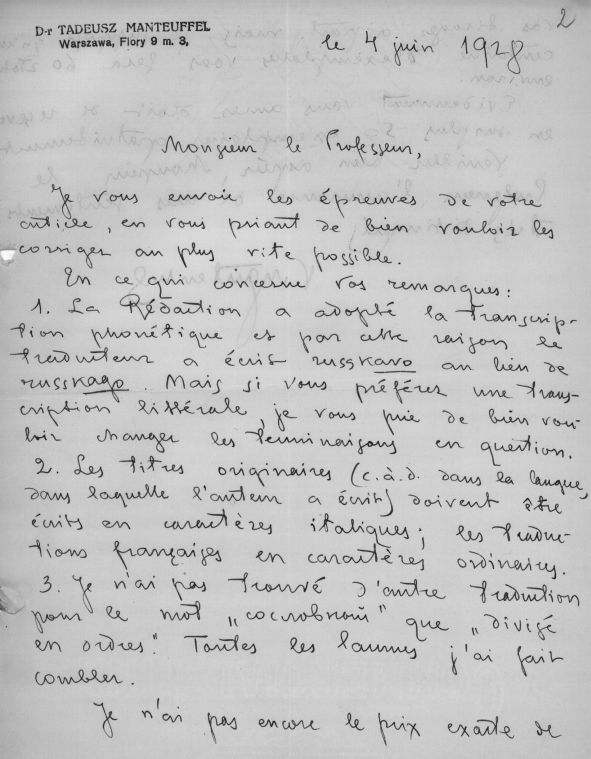 2
D-r TADEUSZ MANTEUFFEL
Warszawa, Flory 9 m. 3,
le 4 juin 1928
Monsieur le Professeur,
Je vous envoie les épreuves de votre
article, en vous priant de bien vouloir les
corriger au plus vite possible.
En ce qui concerne vos remarques:
1. La Rédaction a adopté la transcrip-
tion phonétique et par cette raison le
traducteur a écrit russkavo au lieu de
russkago. Mais si vous préférez une trans-
cription littérale, je vous prie de bien vou-
loir changer les terminaisons en question.
2. Les titres originaires (c.à.d. dans la langue,
dans laquelle l'auteur a écrit) doivent être
écrits en caractères italiques; les traduc-
tions françaises en caractères ordinaires.
3. Je n'ai pas trouvé d'autre traduction
pour le mot „сословной" que „divisé
en ordres". Toutes les lacunes j'ai fait
combler.
Je n'ai pas encore le prix exacte de